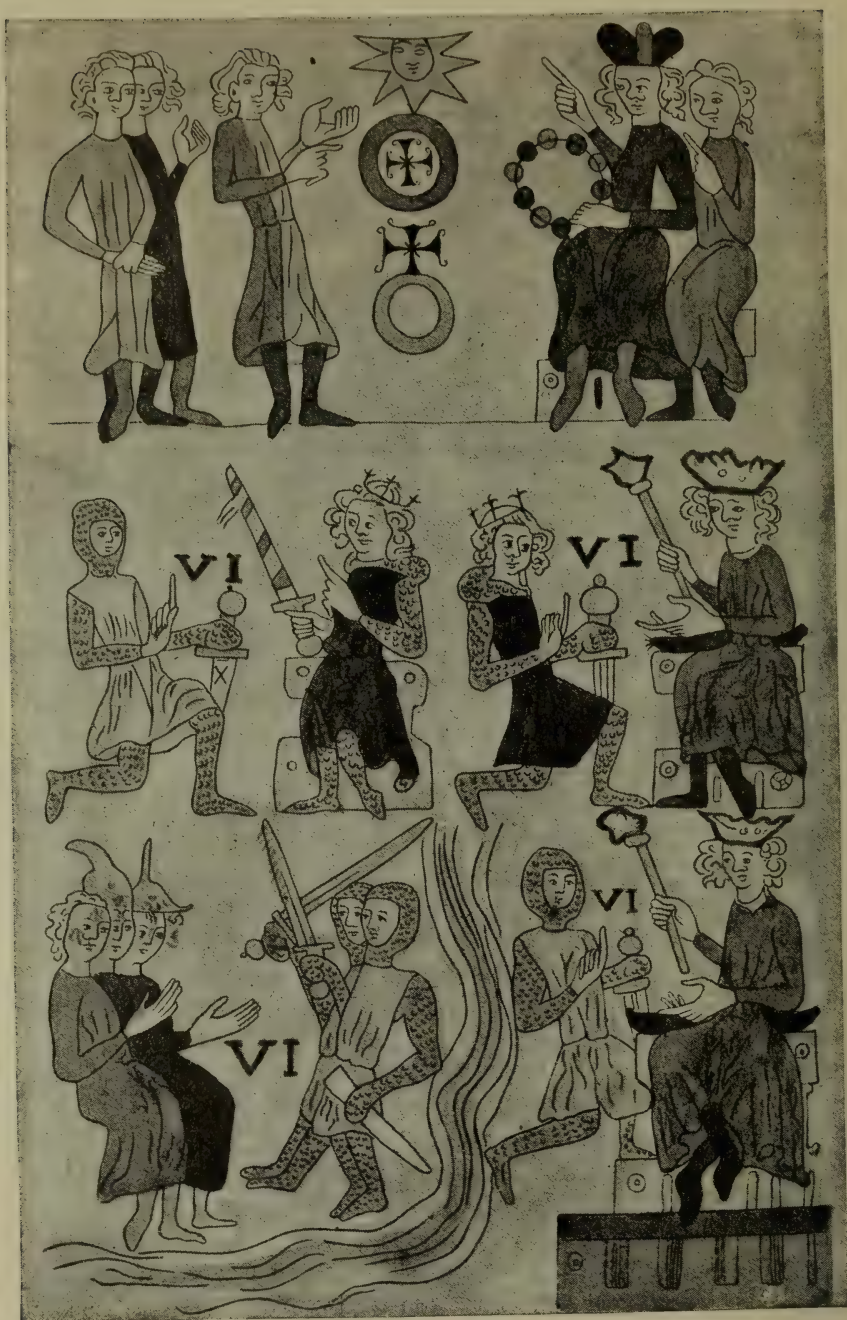 VI
VI
VI
VI